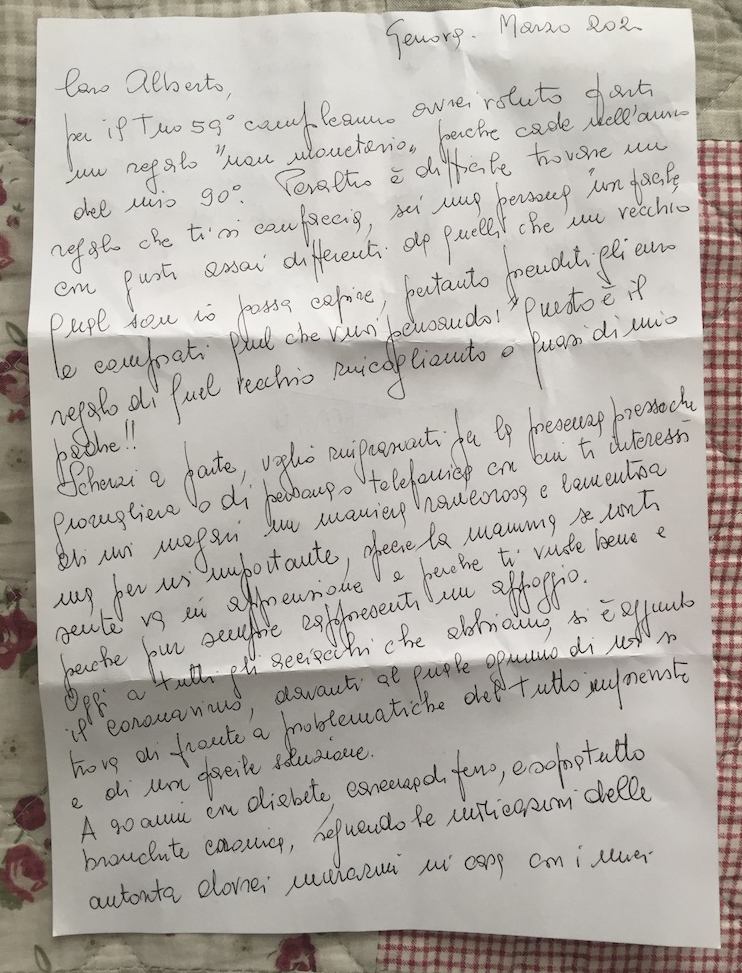 Genova. Marzo 202
Caro Alberto,
per il Tuo 59° compleanno avrei voluto farti
un regalo "non monetario" perche cade nell'anno
del mio 90°. Peraltro è difficile trovare un
regalo che ti si confaccia, sei una persona
con gusti assai differenti da quelli che un vecchio
qual sono io possa capire, pertanto prenditi gli euro
e comprati quel che vuoi pensando: "Questo è il
regalo di quel vecchio rincoglionito o quasi di mio
padre!!
Scherzi a parte, voglio ringraziarti per la presenza pressoche
giornagliera o di persona o telefonica con cui ti interessi
di noi magari in maniera rancorosa e lamentosa
ma per noi importante, specie la mamma se non ti
sente va in apprensione e perche ti vuole bene e
perche pur sempre rappresenti un appoggio.
Oggi a tutti gli acciacchi che abbiamo, si è aggiunto
il coronavirus, davanti al quale ognuno di noi si
trova di fronte a problematiche del tutto impreviste
e di non facile soluzione.
A 90 anni con diabete, carenza di ferro, e soprattutto
bronchite cronica, seguendo le indicazioni delle
autorita dovrei murarmi in casa con i miei